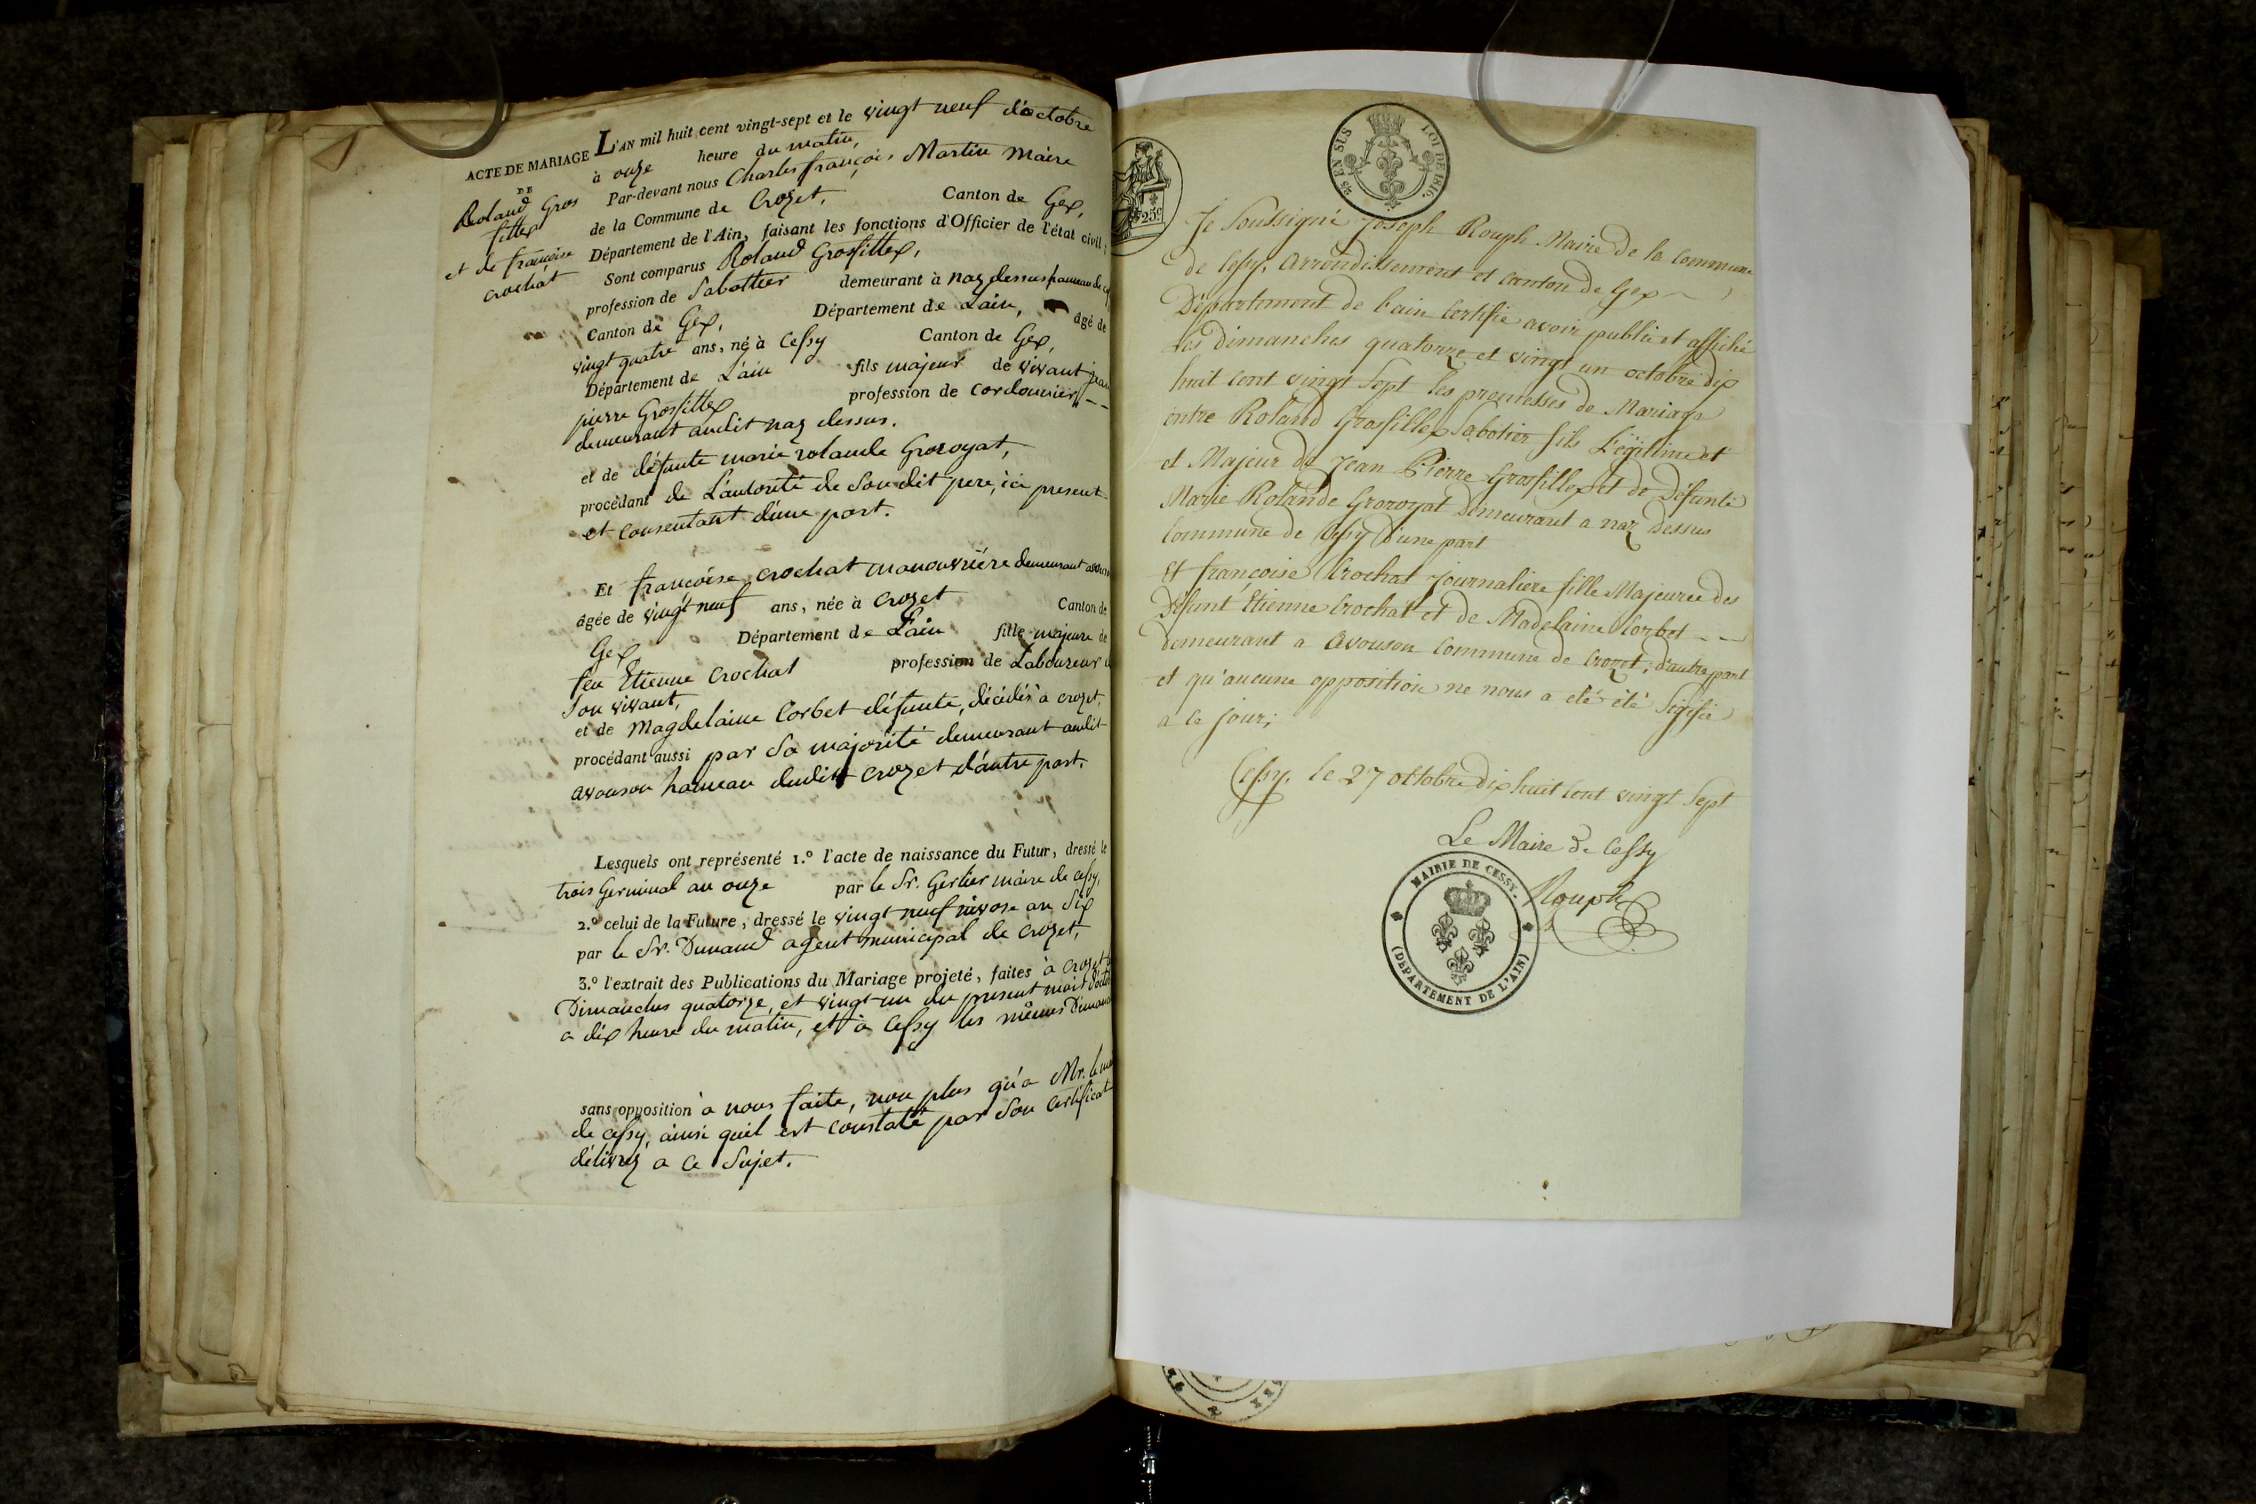 ACTE DE MARIAGE
DE
Roland Gros
fillex
et de françoise
crochat
L'AN mil huit cent vingt-sept et le vingt neuf d'octobre
à onze heure du matin,
Par-devant nous Charles françois Martin Maire
de la Commune de Crozet, Canton de Gex,
Département de l'Ain, faisant les fonctions d'Officier de l'état civil,
Sont comparus Roland Grosfillex,
profession de Sabottier demeurant à Naz dessus hameau de
Canton de Gex, Département de L'ain, âgé de
vingt quatre ans, né à Cessy Canton de Gex,
Département de L'ain fils majeur de vivant jean
pierre Grosfillex profession de cordonnier
demeurant audit naz dessus.
et de défunte marie rolande Grozoyat,
procédant de L'autorité de Son dit pere, ici present
et consentant d'une part.
Et françoise crochat manouvrière demeurant
âgée de vingt neuf ans, née à Crozet Canton de
Gex Département de L'ain fille majeure de
feu Etienne Crochat profession de Laboureur
Son vivant,
et de Magdelaine Corbet défunte, décédés à crozet,
procédant aussi par Sa majorité demeurant audit
avouson hameau dudit Crozet d'autre part.
Lesquels ont représenté 1.º l'acte de naissance du Futur, dressé le
trois Germinal an onze par le Sr. Gerlier maire de cessy,
2.º celui de la Future, dressé le vingt neuf nivose an Six
par le Sr. Dunand agent municipal de Crozet,
3.º l'extrait des Publications du Mariage projeté, faites à Crozet
Dimanches quatorze, et vingt-un du present mois
a dix heure du matin, et à Cessy les mêmes
sans opposition à nous faite, non plus qu'a Mr.
de cessy, ainsi quil est constaté par Son certificat
délivrez a ce Sujet.
25c
LOI DE 1816.
25 EN SUS
Je Soussigné Joseph Rouph Maire de la Commune
de Cessy, arrondissement et canton de Gex
Département de l'ain Certifie avoir publié et affiché
les dimanches quatorze et vingt un octobre dix
huit cent vingt Sept les promesses de Mariage
entre Roland Grosfillex Sabotier fils Légitime et
et Majeur de Jean Pierre Grosfillex et de Défunte
Marie Rolande Grozoyat Demeurant a naz dessus
Commune de Cessy D'une part
Et françoise Crochat Journaliere fille Majeuree des
Défunt Etienne Crochat et de Madelaine Corbet
demeurant a Avouson Commune de Crozet, d'autre part
et qu'aucune opposition ne nous a été été Sigifié
a ce jour;
Cessy, le 27 octobre dix huit cent vingt Sept
Le Maire de Cessy
Rouph
MAIRIE DE CESSY.
(DÉPARTEMENT DE L'AIN)